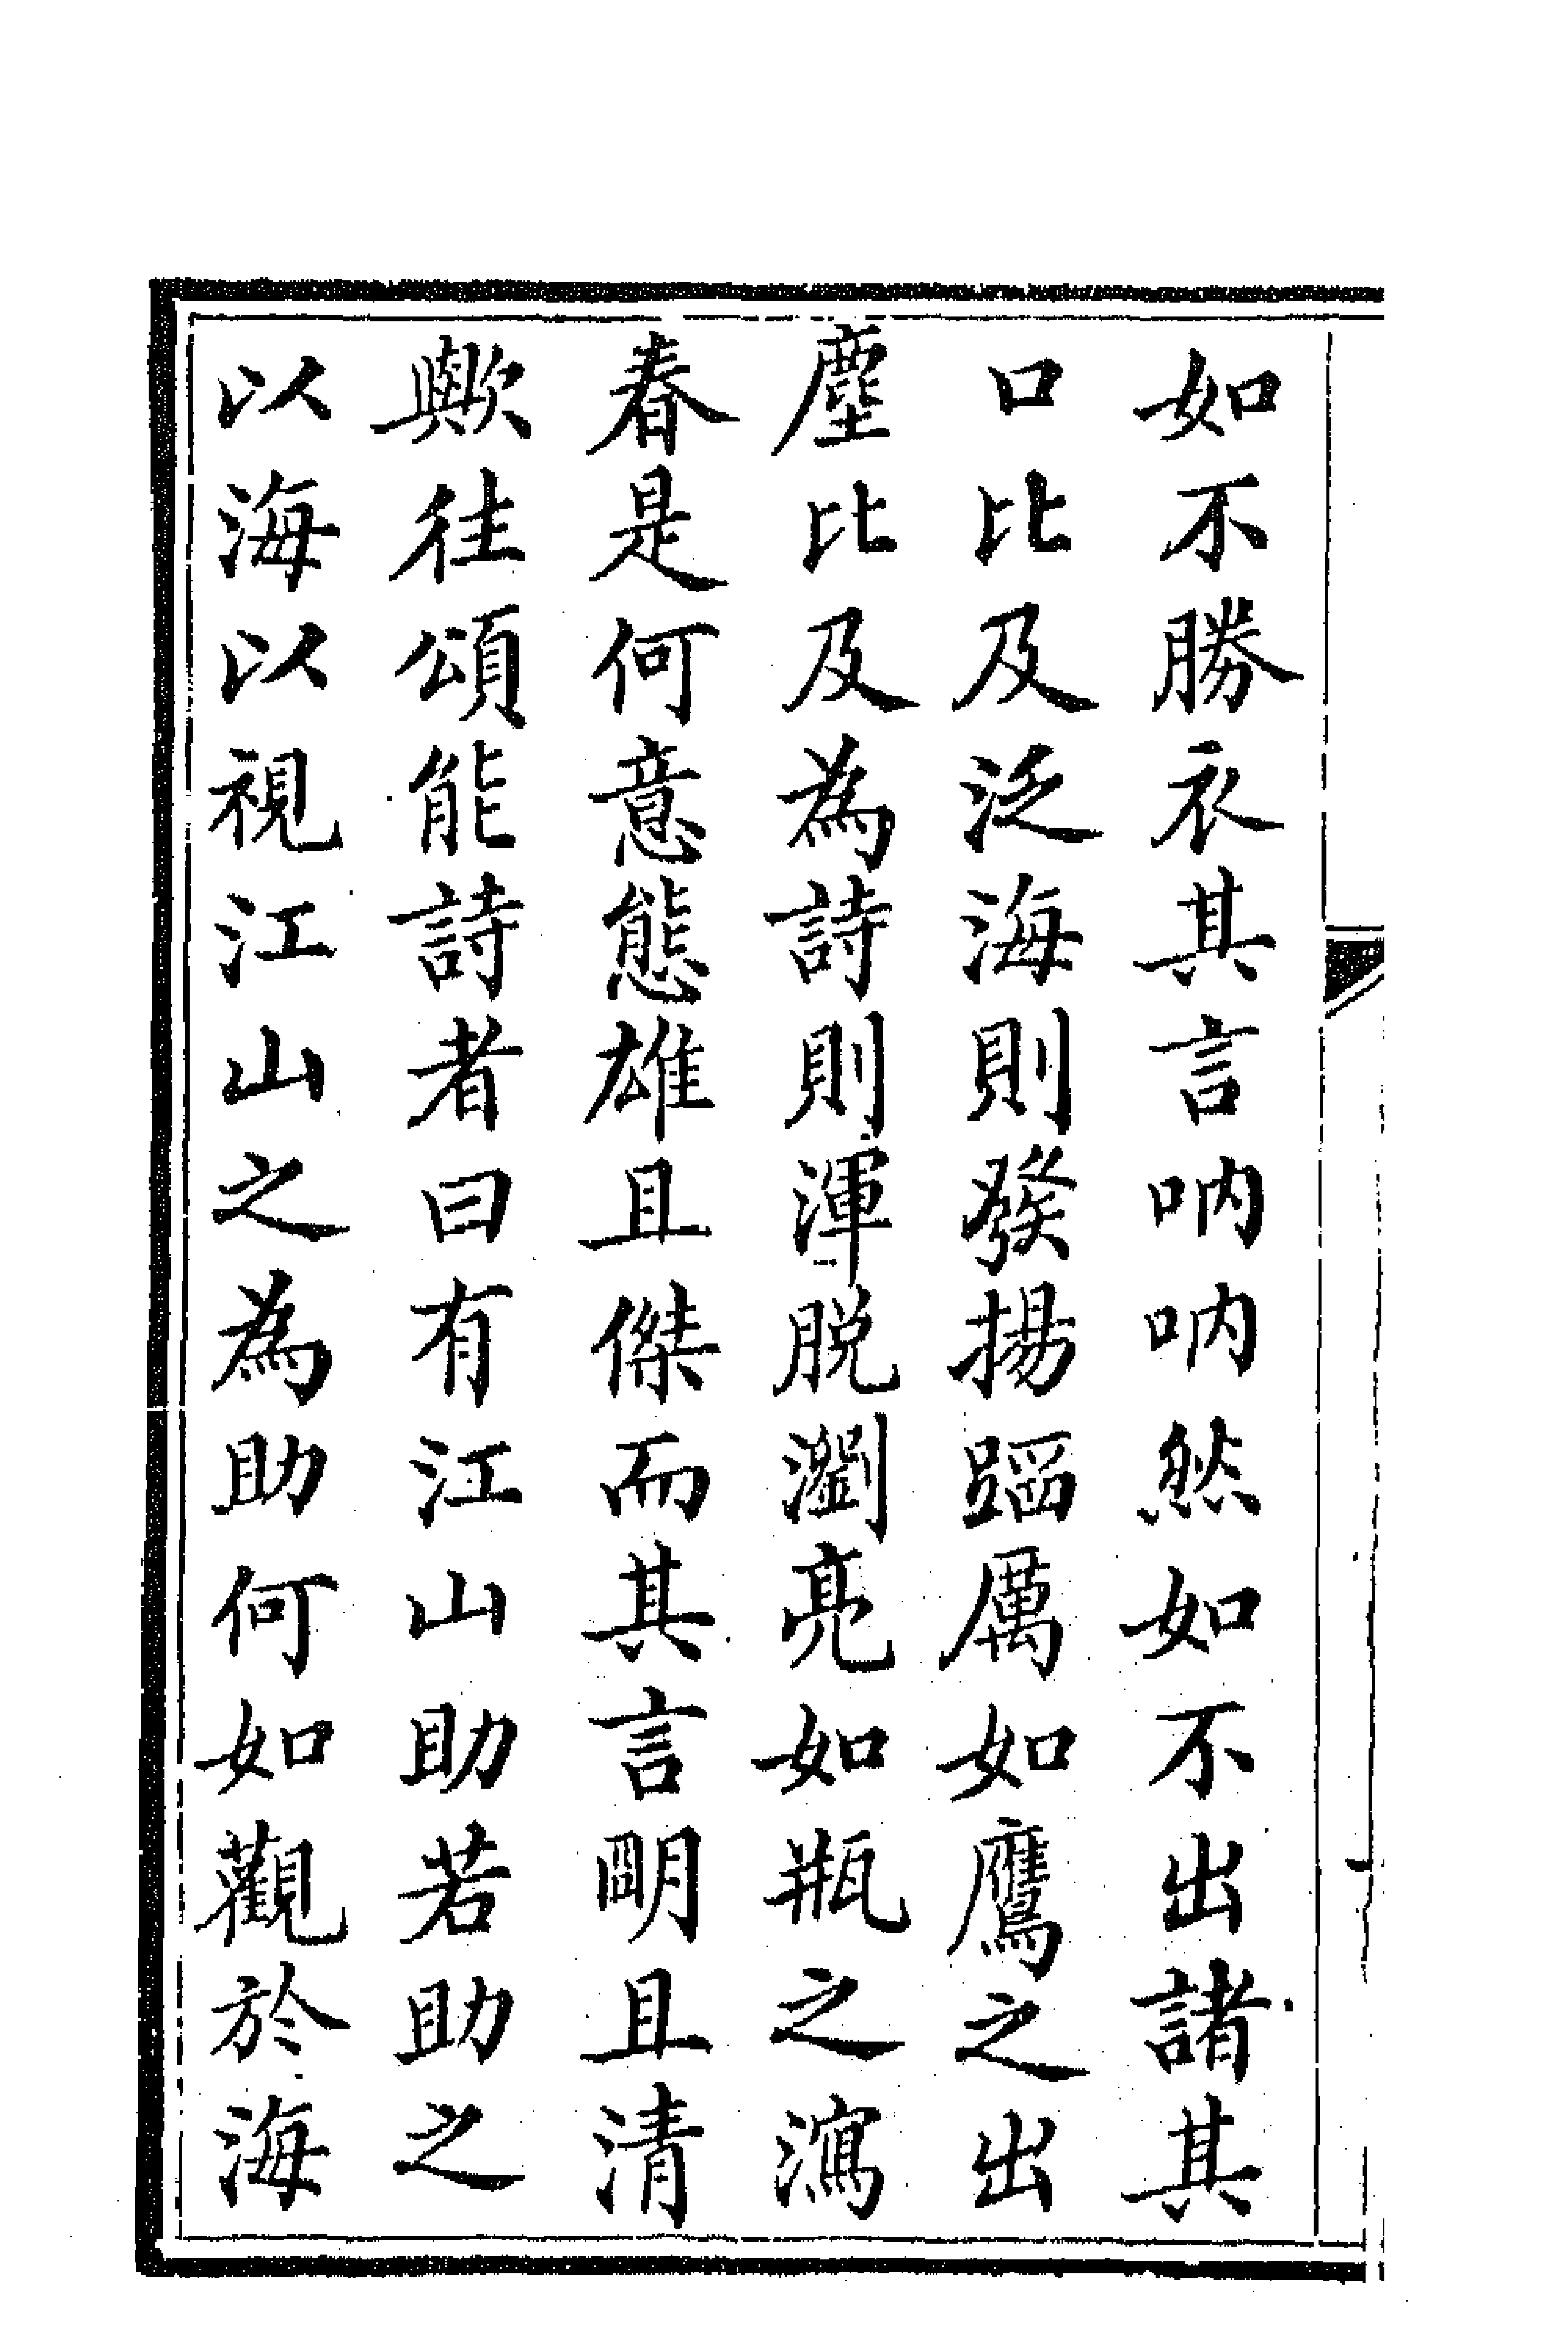 如不勝衣其言吶吶然如不出諸其
口比及泛海則發揚蹈厲如鷹之出
塵比及為詩則渾脫瀏亮如瓶之瀉
春是何意態雄且傑而其言明且清
歟往頌能詩者曰有江山助若助之
以海以視江山之為助何如觀於海